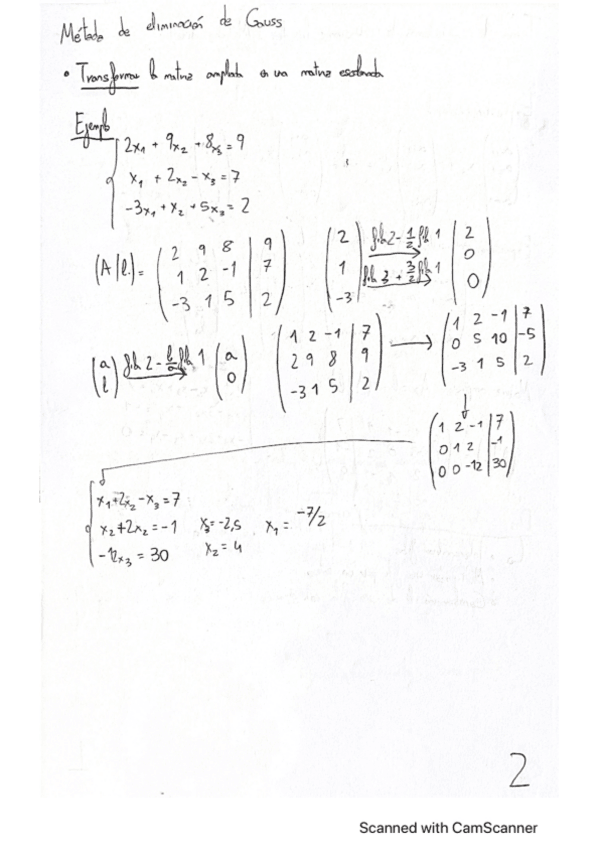 Método de eliminación de Gauss
• Transformar la matriz ampliada en una matriz escalonada
Ejemplo
2x₁ + 9x₂ + 8x₃ = 9
x₁ + 2x₂ - x₃ = 7
-3x₁ + x₂ + 5x₃ = 2
(A|b) = ( 2 9 8 | 9
1 2 -1 | 7
-3 1 5 | 2 )
( 2 1 -3 ) fila 2 - 1/2 fila 1 ( 2 0 0 )
fila 3 + 3/2 fila 1
( a b ) fila 2 - b/a fila 1 ( a 0 )
( 1 2 -1 | 7
2 9 8 | 9
-3 1 5 | 2 )
→ ( 1 2 -1 | 7
0 5 10 | -5
-3 1 5 | 2 )
( 1 2 -1 | 7
0 1 2 | -1
0 0 -12 | 30 )
x₁ + 2x₂ - x₃ = 7
x₂ + 2x₂ = -1 x₃ = -2,5 x₁ = -7/2
-12x₃ = 30 x₂ = 4
2
Scanned with CamScanner